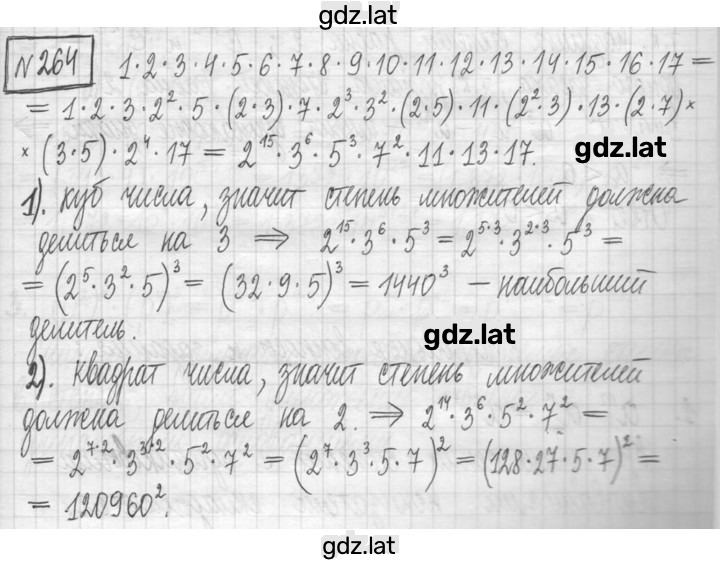 gdz.lat
№264 1·2·3·4·5·6·7·8·9·10·11·12·13·14·15·16·17 =
= 1·2·3·2²·5·(2·3)·7·2³·3²·(2·5)·11·(2²·3)·13·(2·7)×
×(3·5)·2⁴·17 = 2¹⁵·3⁶·5³·7²·11·13·17.
gdz.lat
1). куб числа, значит степень множителей должна
делиться на 3 ⇒ 2¹⁵·3⁶·5³ = 2⁵·³·3²·³·5³ =
= (2⁵·3²·5)³ = (32·9·5)³ = 1440³ – наибольший
делитель.
gdz.lat
2). квадрат числа, значит степень множителей
должна делиться на 2. ⇒ 2¹⁴·3⁶·5²·7² =
= 2⁷·²·3³·²·5²·7² = (2⁷·3³·5·7)² = (128·27·5·7)² =
= 120960².
gdz.lat